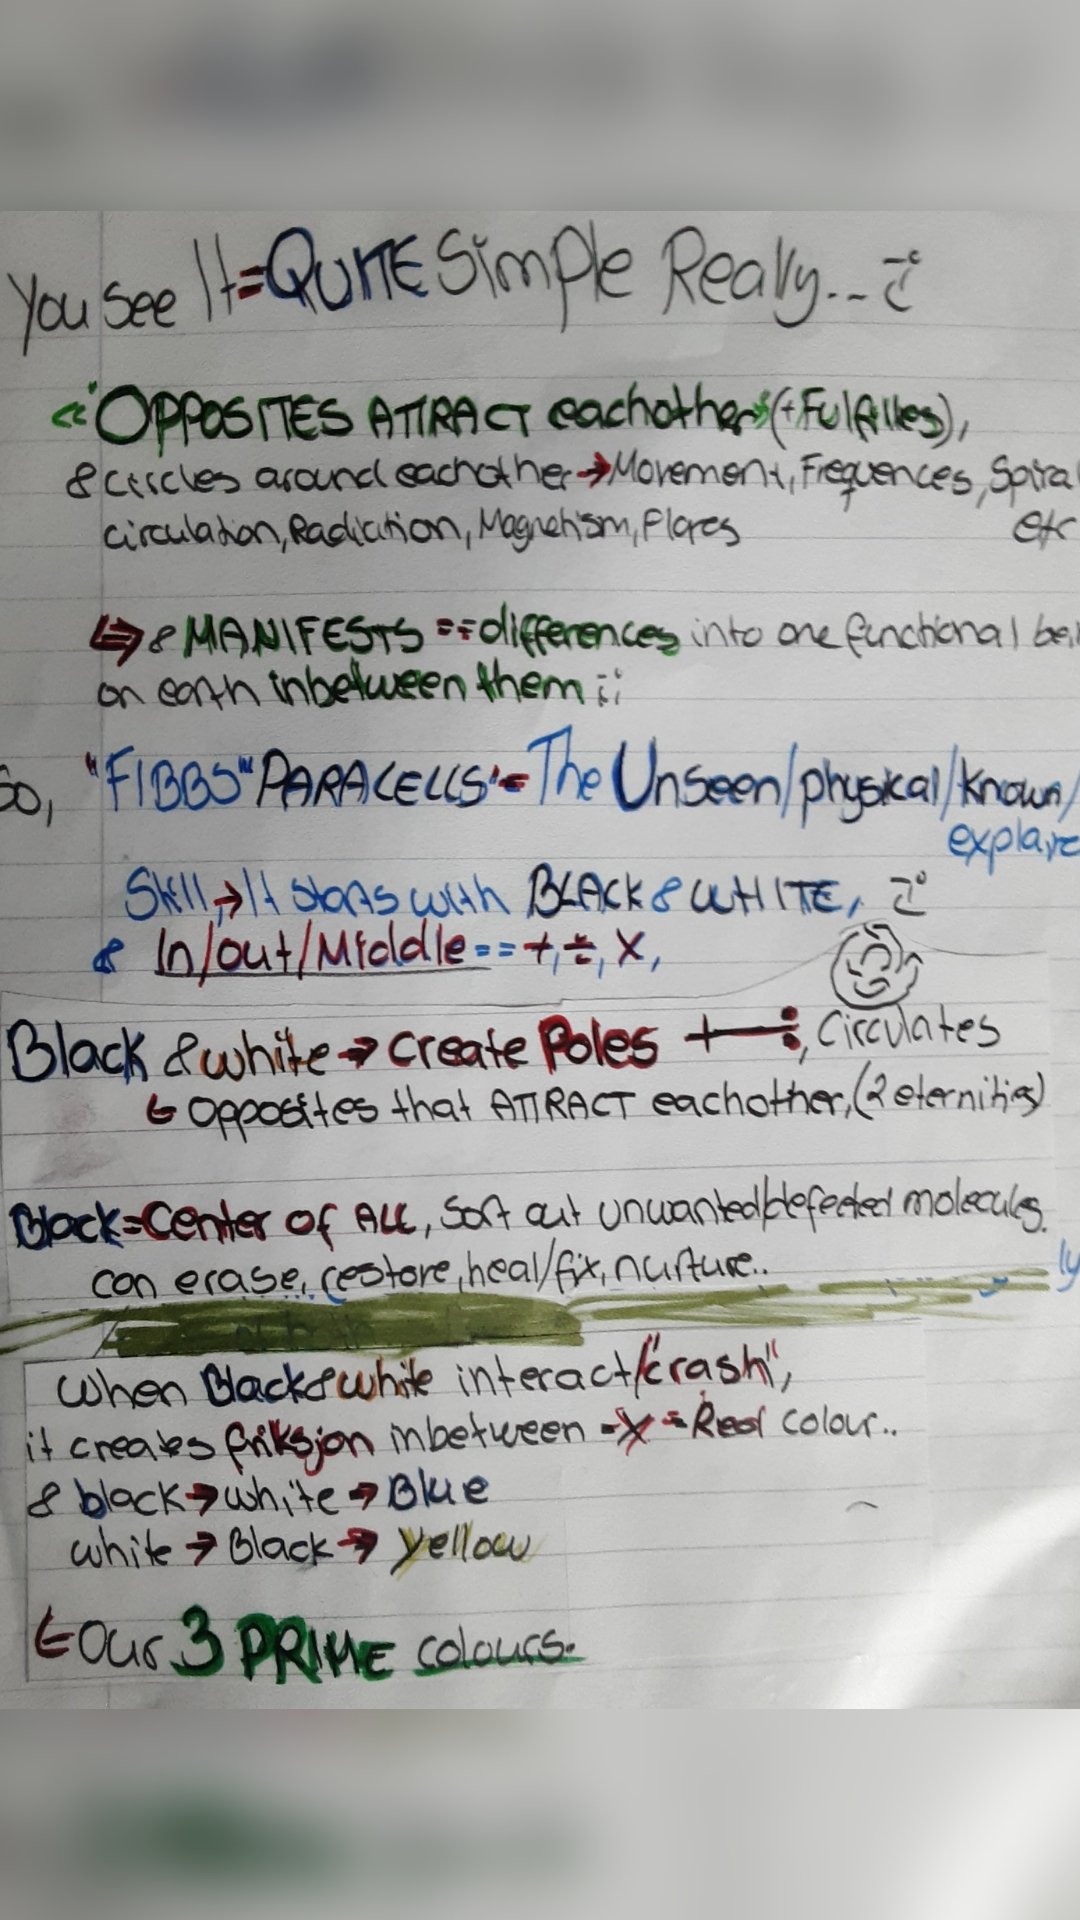 You see It=QUITE Simple Really...
«"OPPOSITES ATTRACT eachother"(+Fulfilles),
& circles around eachother→Movement, Frequences, Spiral
circulation, Radiation, Magnetism, Flares etc
↳→ & MANIFESTS =÷differences into one functional
on earth inbetween them ;;
So, "FIBBS" PARACELLS"= The Unseen/physical/known/
Still,→It starts with BLACK & WHITE,
& In/out/Middle==+,÷,X,
Black & white→ create Poles +—÷, Circulates
↳ Opposites that ATTRACT eachother, (2 eternities)
Black=Center of ALL, Sort out unwanted/defected molecules.
can erase, restore, heal/fix, nurture..
ly
When Black&white interact/"crash",
it creates friksjon inbetween -X =Red colour..
& black→white→Blue
white→Black→Yellow
↳Our 3 PRIME colours.